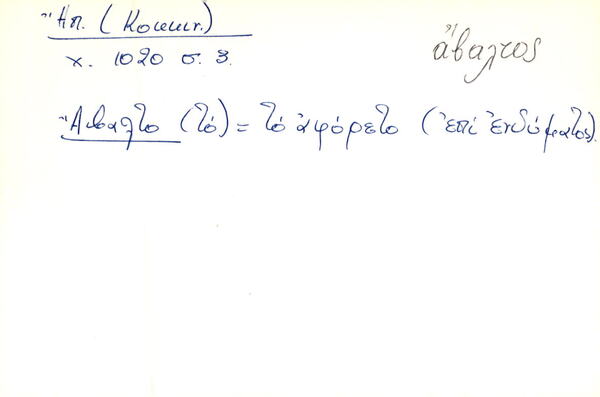 Ἤπ. (Κουκουλ.)
χ. 1020 σ. 3.
ἄβαλτος
Ἄβαλτο (τό) = τό ἀφόρετο (ἐπί ἐνδύματος).